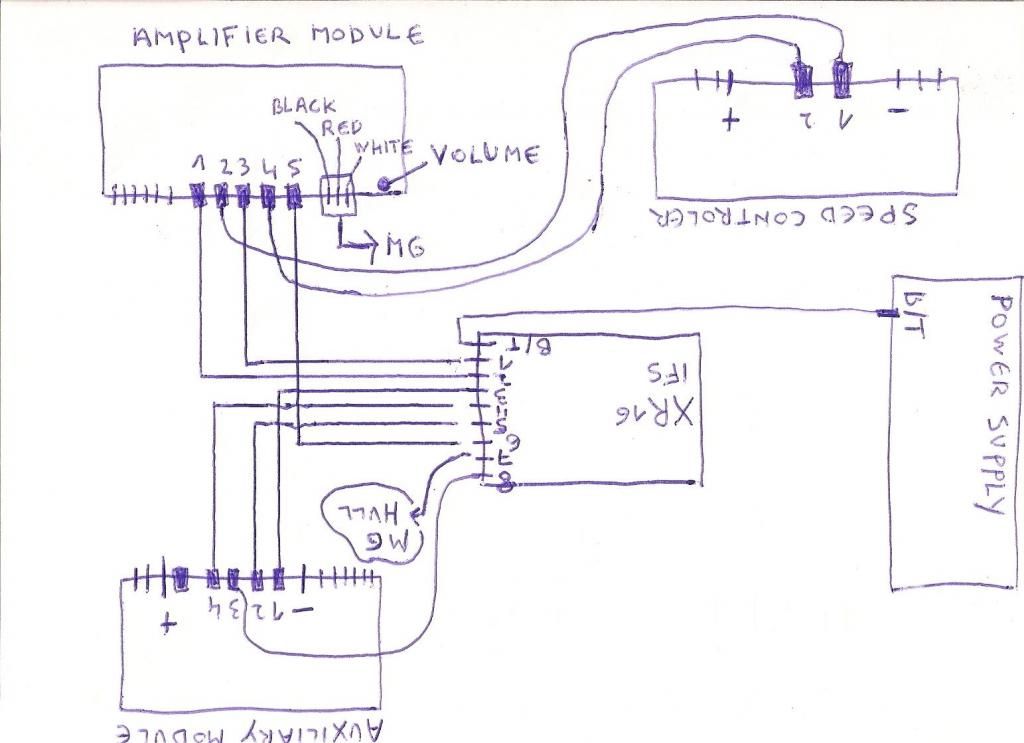 AMPLIFIER MODULE
BLACK
RED
WHITE
VOLUME
1 2 3 4 5
MG
+ 2 1 -
SPEED CONTROLER
B/T
POWER SUPPLY
B/T
1
2
3
4
5
6
7
8
IFS
XR16
MG
HULL
+ 4 3 2 1 -
AUXILIARY MODULE